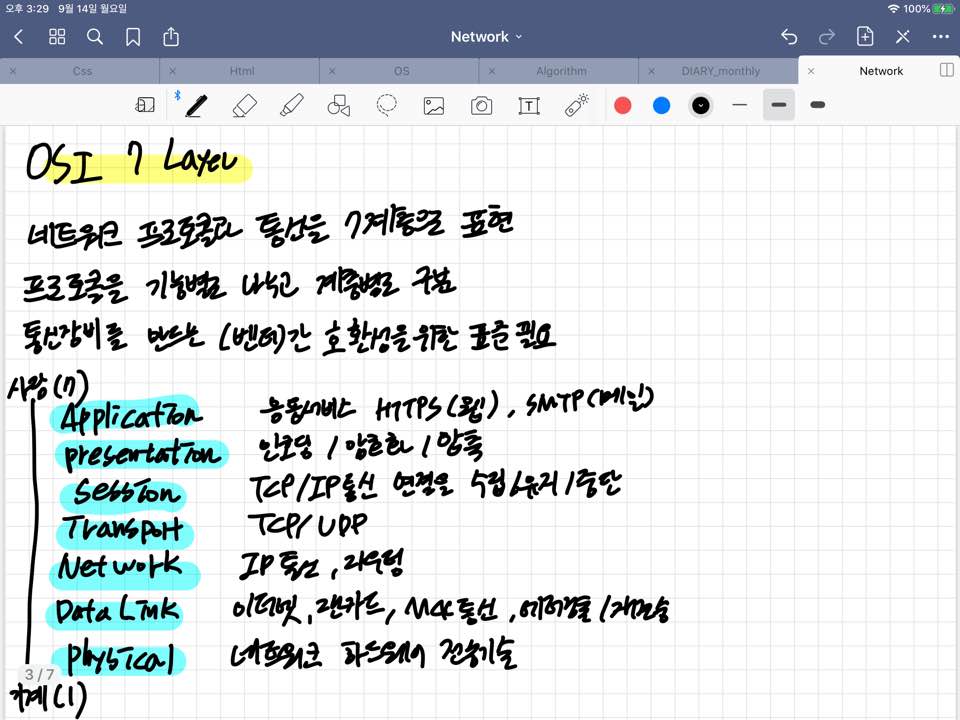 오후 3:29 9월 14일 월요일 100%
Network
Css Html OS Algorithm DIARY_monthly Network
OSI 7 Layer
네트워크 프로토콜과 통신을 7계층으로 표현
프로토콜을 기능별로 나누고 계층별로 구분
통신장비를 만드는 (벤더)간 호환성을 위한 표준 필요
사람(7)
Application 응용서비스 HTTPS(웹), SMTP(메일)
presentation 인코딩 / 암호화 / 압축
Session TCP/IP통신 연결을 수립/유지/중단
Transport TCP/UDP
Network IP통신, 라우팅
Data Link 이더넷, 랜카드, MAC통신, 에러검출/재전송
physical 네트워크 하드웨어 전송기술
3 / 7
기계(1)